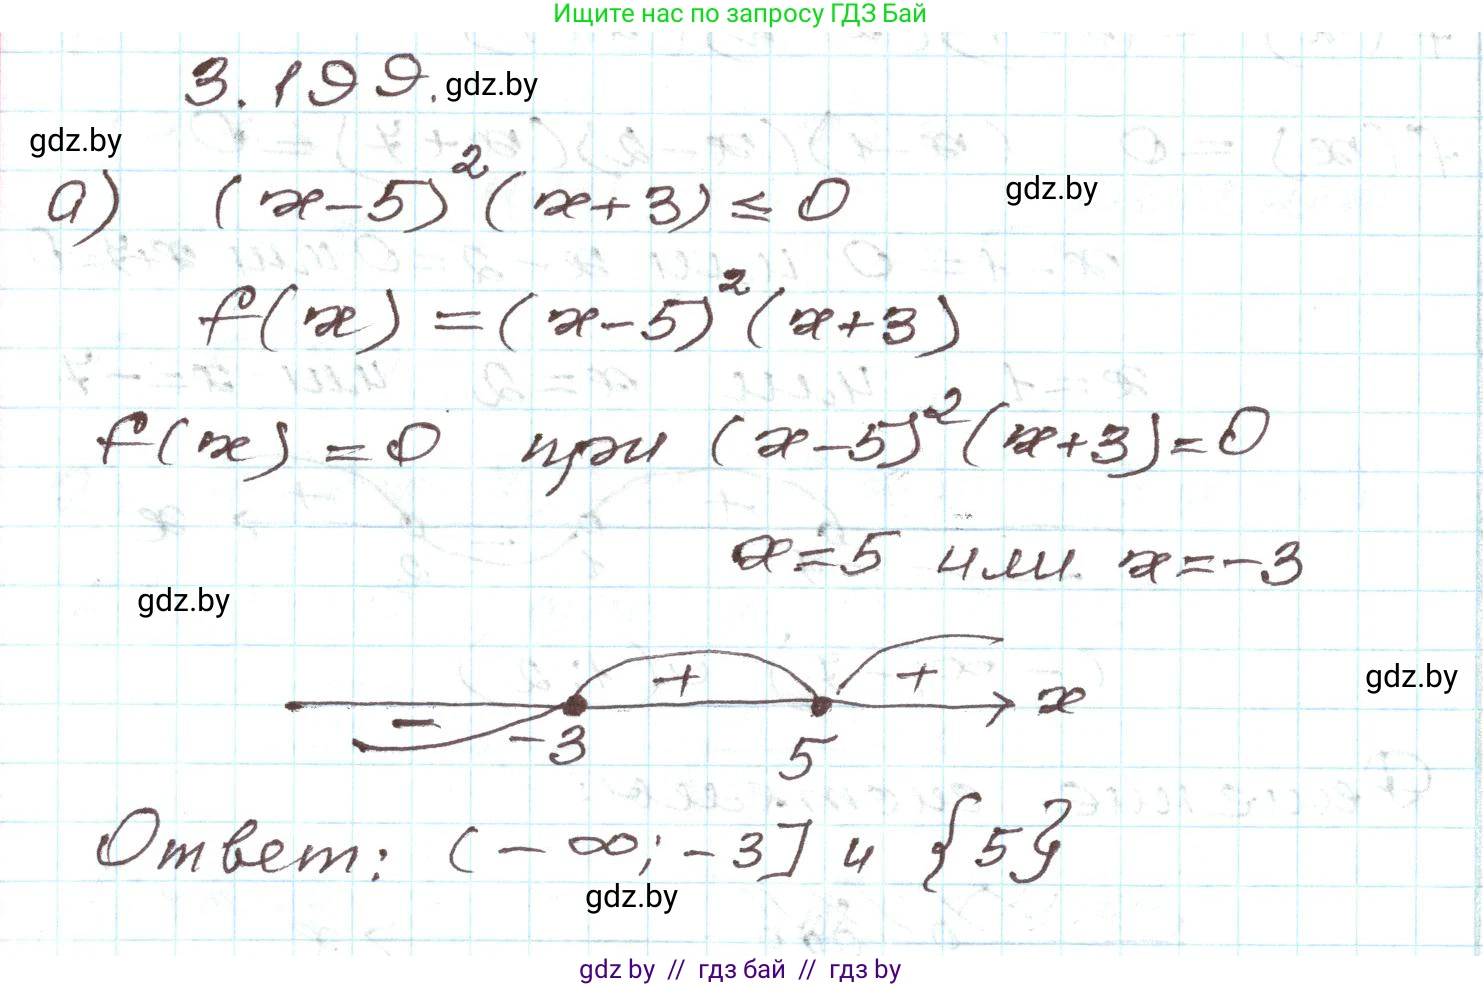 Ищите нас по запросу ГДЗ Бай
3.199. gdz.by
gdz.by
а) (x-5)²(x+3)≤0 gdz.by
f(x)=(x-5)²(x+3)
f(x)=0 при (x-5)²(x+3)=0
x=5 или x=-3
gdz.by
+ + gdz.by
- x
-3 5
Ответ: (-∞; -3] и {5}
gdz.by
gdz.by // гдз бай // гдз by